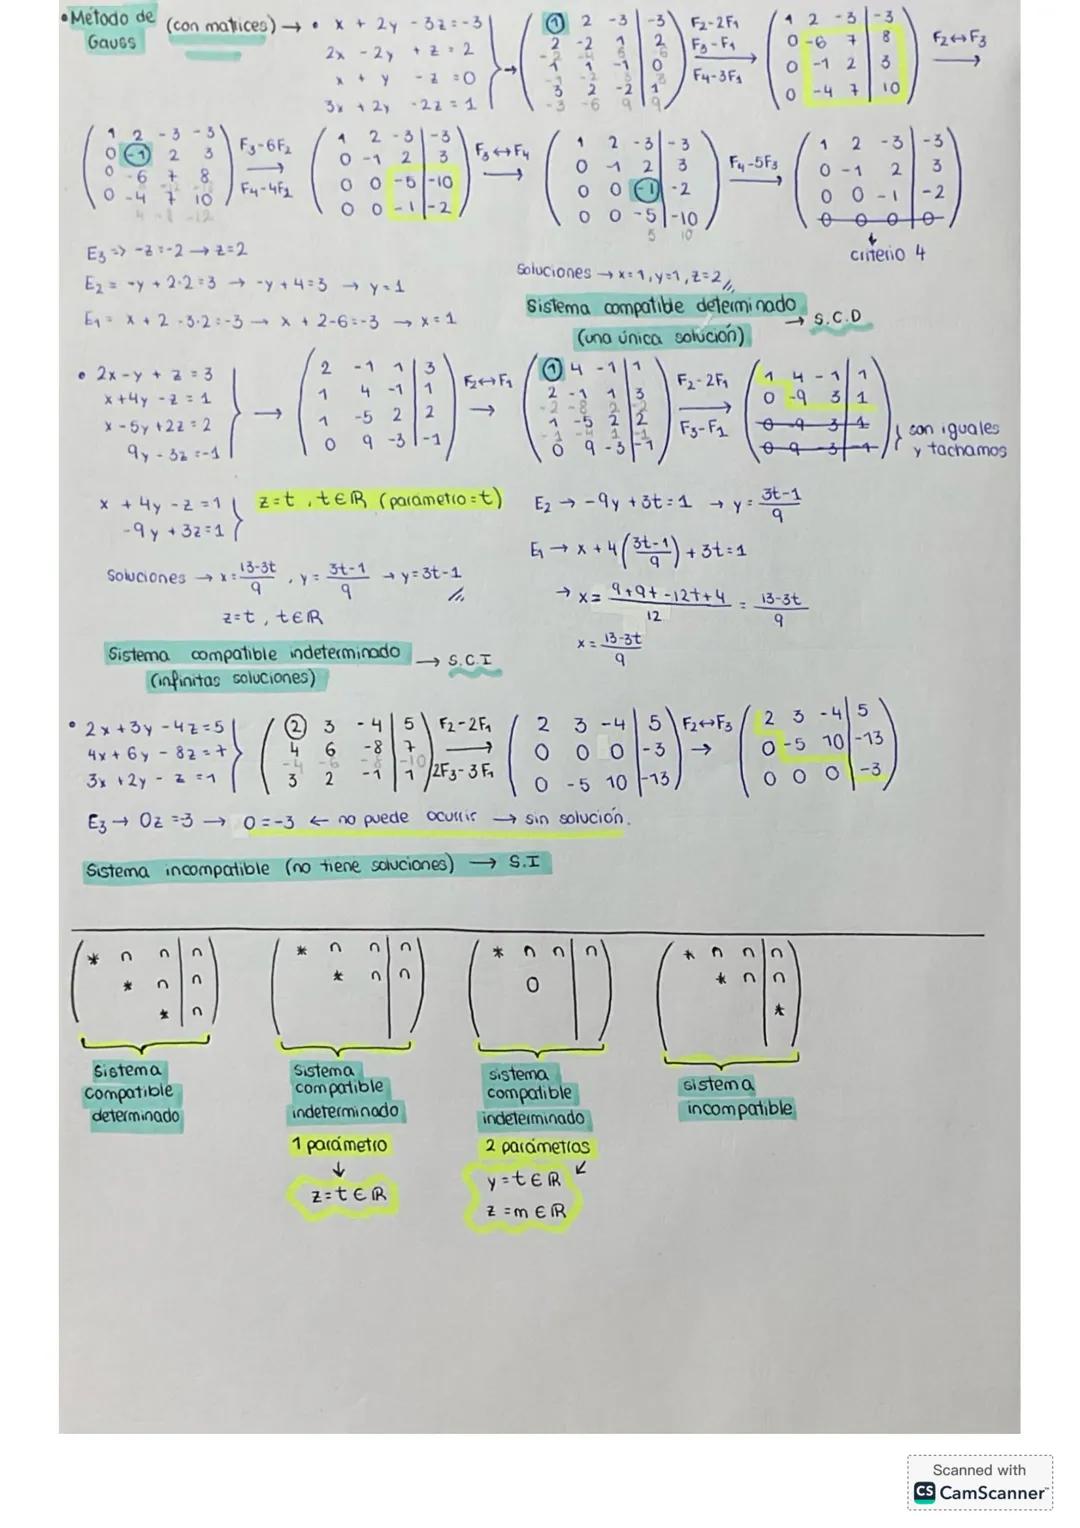 •Método de Gauss (con matrices) → • x + 2y - 3z = -3
2x - 2y + z = 2
x + y - z = 0
3x + 2y - 2z = 1
1 2 -3 | -3
2 -2 1 | 2
1 1 -1 | 0
3 2 -2 | 1
F2-2F1
F3-F1
F4-3F1
1 2 -3 | -3
0 -6 7 | 8
0 -1 2 | 3
0 -4 7 | 10
F2↔F3
1 2 -3 -3
0 -1 2 3
0 -6 7 8
0 -4 7 10
F3-6F2
F4-4F2
1 2 -3 | -3
0 -1 2 | 3
0 0 -5 | -10
0 0 -1 | -2
F3↔F4
1 2 -3 | -3
0 -1 2 | 3
0 0 -1 | -2
0 0 -5 | -10
5 10
F4-5F3
1 2 -3 | -3
0 -1 2 | 3
0 0 -1 | -2
0 0 0 0
criterio 4
E3 => -z = -2 → z=2
E2 = -y + 2·2=3 → -y + 4=3 → y=1
E1 = x + 2 - 3·2 = -3 → x + 2-6=-3 → x=1
Soluciones → x=1, y=1, z=2
Sistema compatible determinado → S.C.D
(una única solución)
• 2x - y + z = 3
x + 4y - z = 1
x - 5y + 2z = 2
9y - 3z = -1
2 -1 1 | 3
1 4 -1 | 1
1 -5 2 | 2
0 9 -3 | -1
F2↔F1
1 4 -1 | 1
2 -1 1 | 3
1 -5 2 | 2
0 9 -3 | -1
F2-2F1
F3-F1
1 4 -1 | 1
0 -9 3 | 1
0 -9 3 | 1
0 9 -3 | -1
son iguales
y tachamos
x + 4y - z = 1
-9y + 3z = 1
z=t, t∈R (parámetro=t)
E2 → -9y + 3t = 1 → y = 3t-1/9
E1 → x + 4(3t-1/9) + 3t = 1
Soluciones → x = 13-3t/9, y = 3t-1/9 → y=3t-1
z=t, t∈R
→ x = 9+9t-12t+4/12 = 13-3t/9
x = 13-3t/9
Sistema compatible indeterminado → S.C.I
(infinitas soluciones)
• 2x + 3y - 4z = 5
4x + 6y - 8z = 7
3x + 2y - z = 1
2 3 -4 | 5
4 6 -8 | 7
-4 -6 -8 -10
3 2 -1 | 1
F2-2F1
2F3-3F1
2 3 -4 | 5
0 0 0 | -3
0 -5 10 | -13
F2↔F3
2 3 -4 | 5
0 -5 10 | -13
0 0 0 | -3
E3 → 0z = 3 → 0=-3 ← no puede ocurrir → sin solución.
Sistema incompatible (no tiene soluciones) → S.I
* n n | n
* n | n
* | n
Sistema
compatible
determinado
* n n | n
* n | n
Sistema
compatible
indeterminado
1 parámetro
↓
z=t∈R
* n n | n
0
sistema
compatible
indeterminado
2 parámetros
y=t∈R
z=m∈R
* n n | n
* n | n
*
sistema
incompatible
Scanned with
CS CamScanner